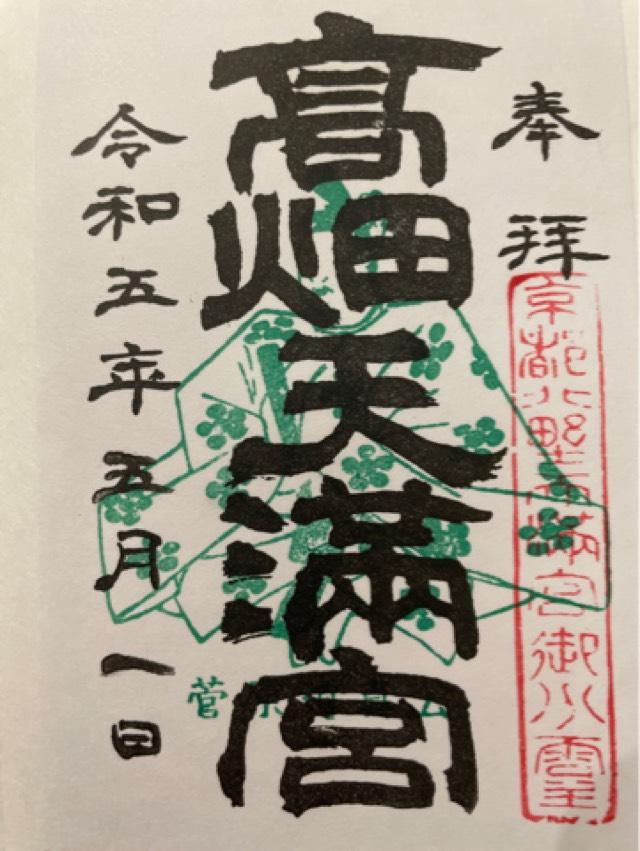 奉拝
京都北野天満宮御分霊
髙畑天満宮
令和五年五月一日
菅原 公